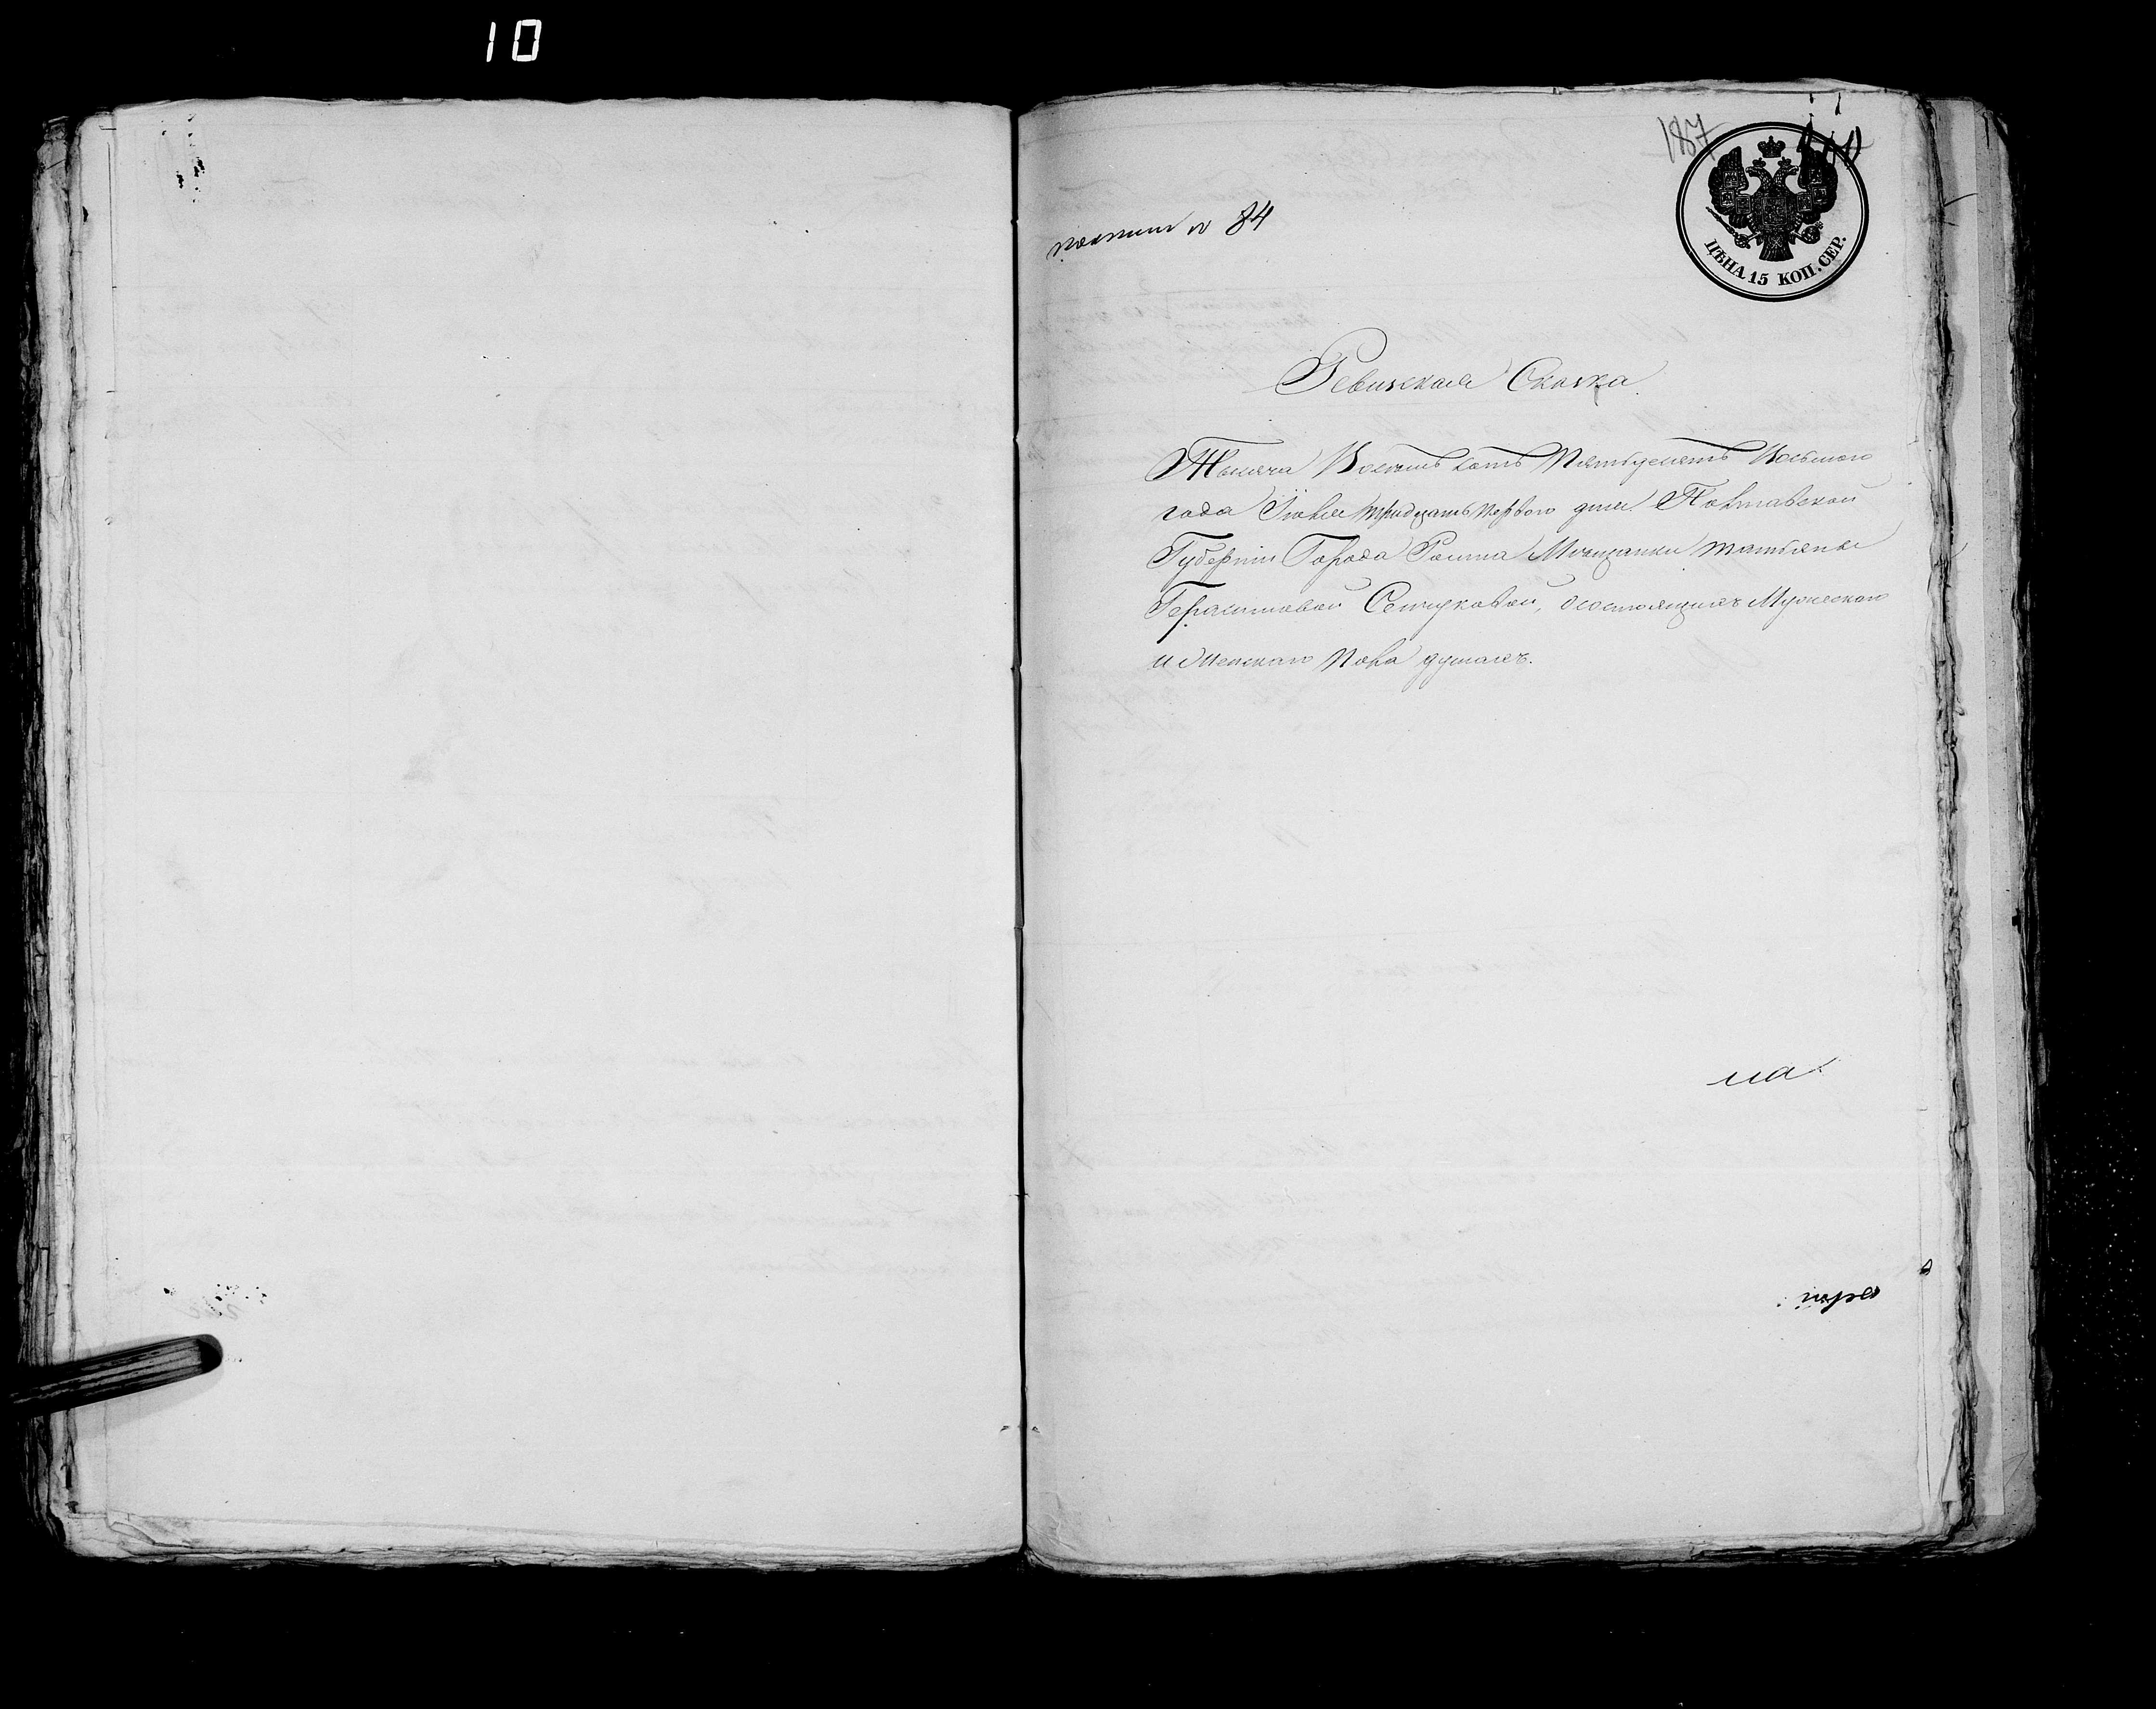 10
187
ЦѢНА 15 КОП. СЕР.
84
Ревизская Сказка.
Тысяча Восемь сотъ Пятьдесятъ Восьмого
года Іюля тридцать первого дня Полтавской
Губерніи Города Ромна Мещанки татьяны
Герасимовой Сенчуковой, о состоящихъ Мужеского
и Женского Пола душахъ.
на